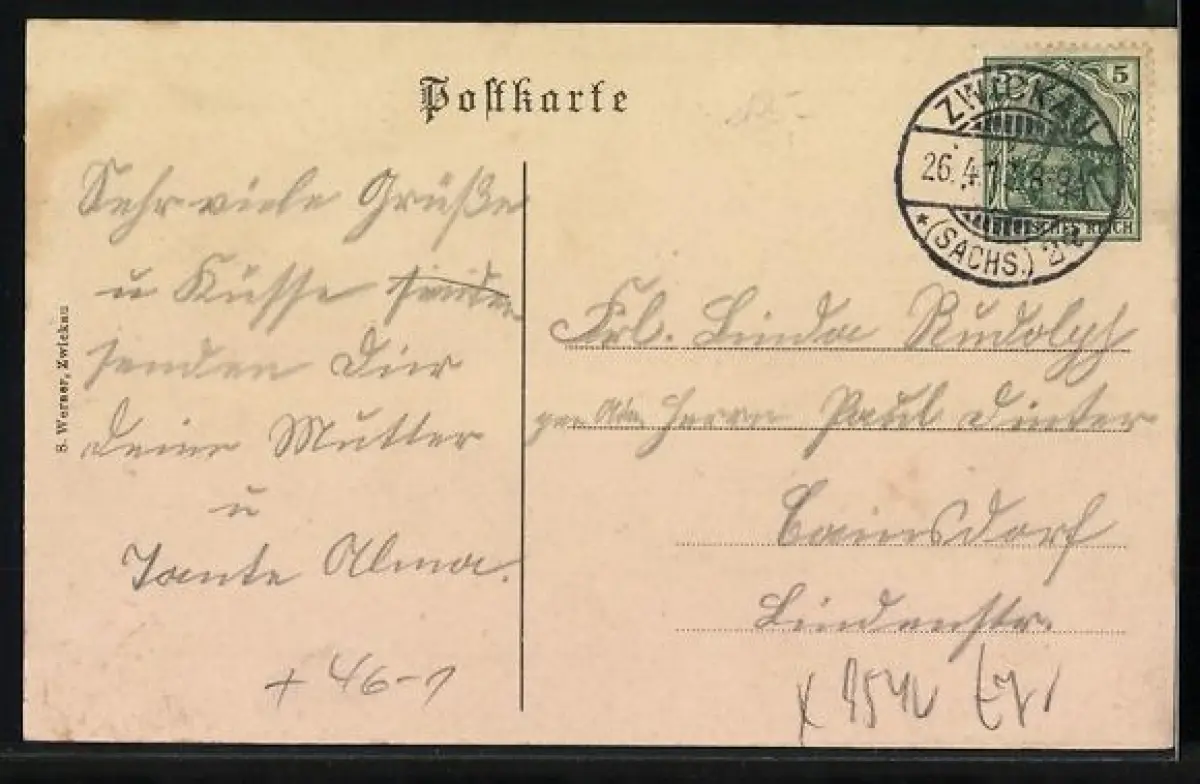 Postkarte
Sehr viele Grüße
u Küsse
senden Dir
deine Mutter
u
Tante Alma.
+ 46-1
S. Werner, Zwickau
5 5
DEUTSCHES REICH
ZWICKAU
26.4. 8-9
* (SACHS.) 2
Frl. Linda Rudolph
Herrn Paul Dinter
Cainsdorf
Lindenstr.